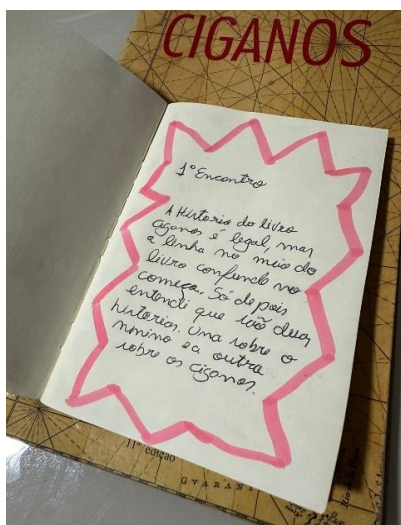 CIGANOS
1º Encontro
A Historia do livro
Ciganos é legal, mas
a linha no meio do
livro confunde no
começo. Só depois
entendi que são duas
historias. Uma sobre o
menino e a outra
sobre os ciganos.
11ª edição
GUARANI